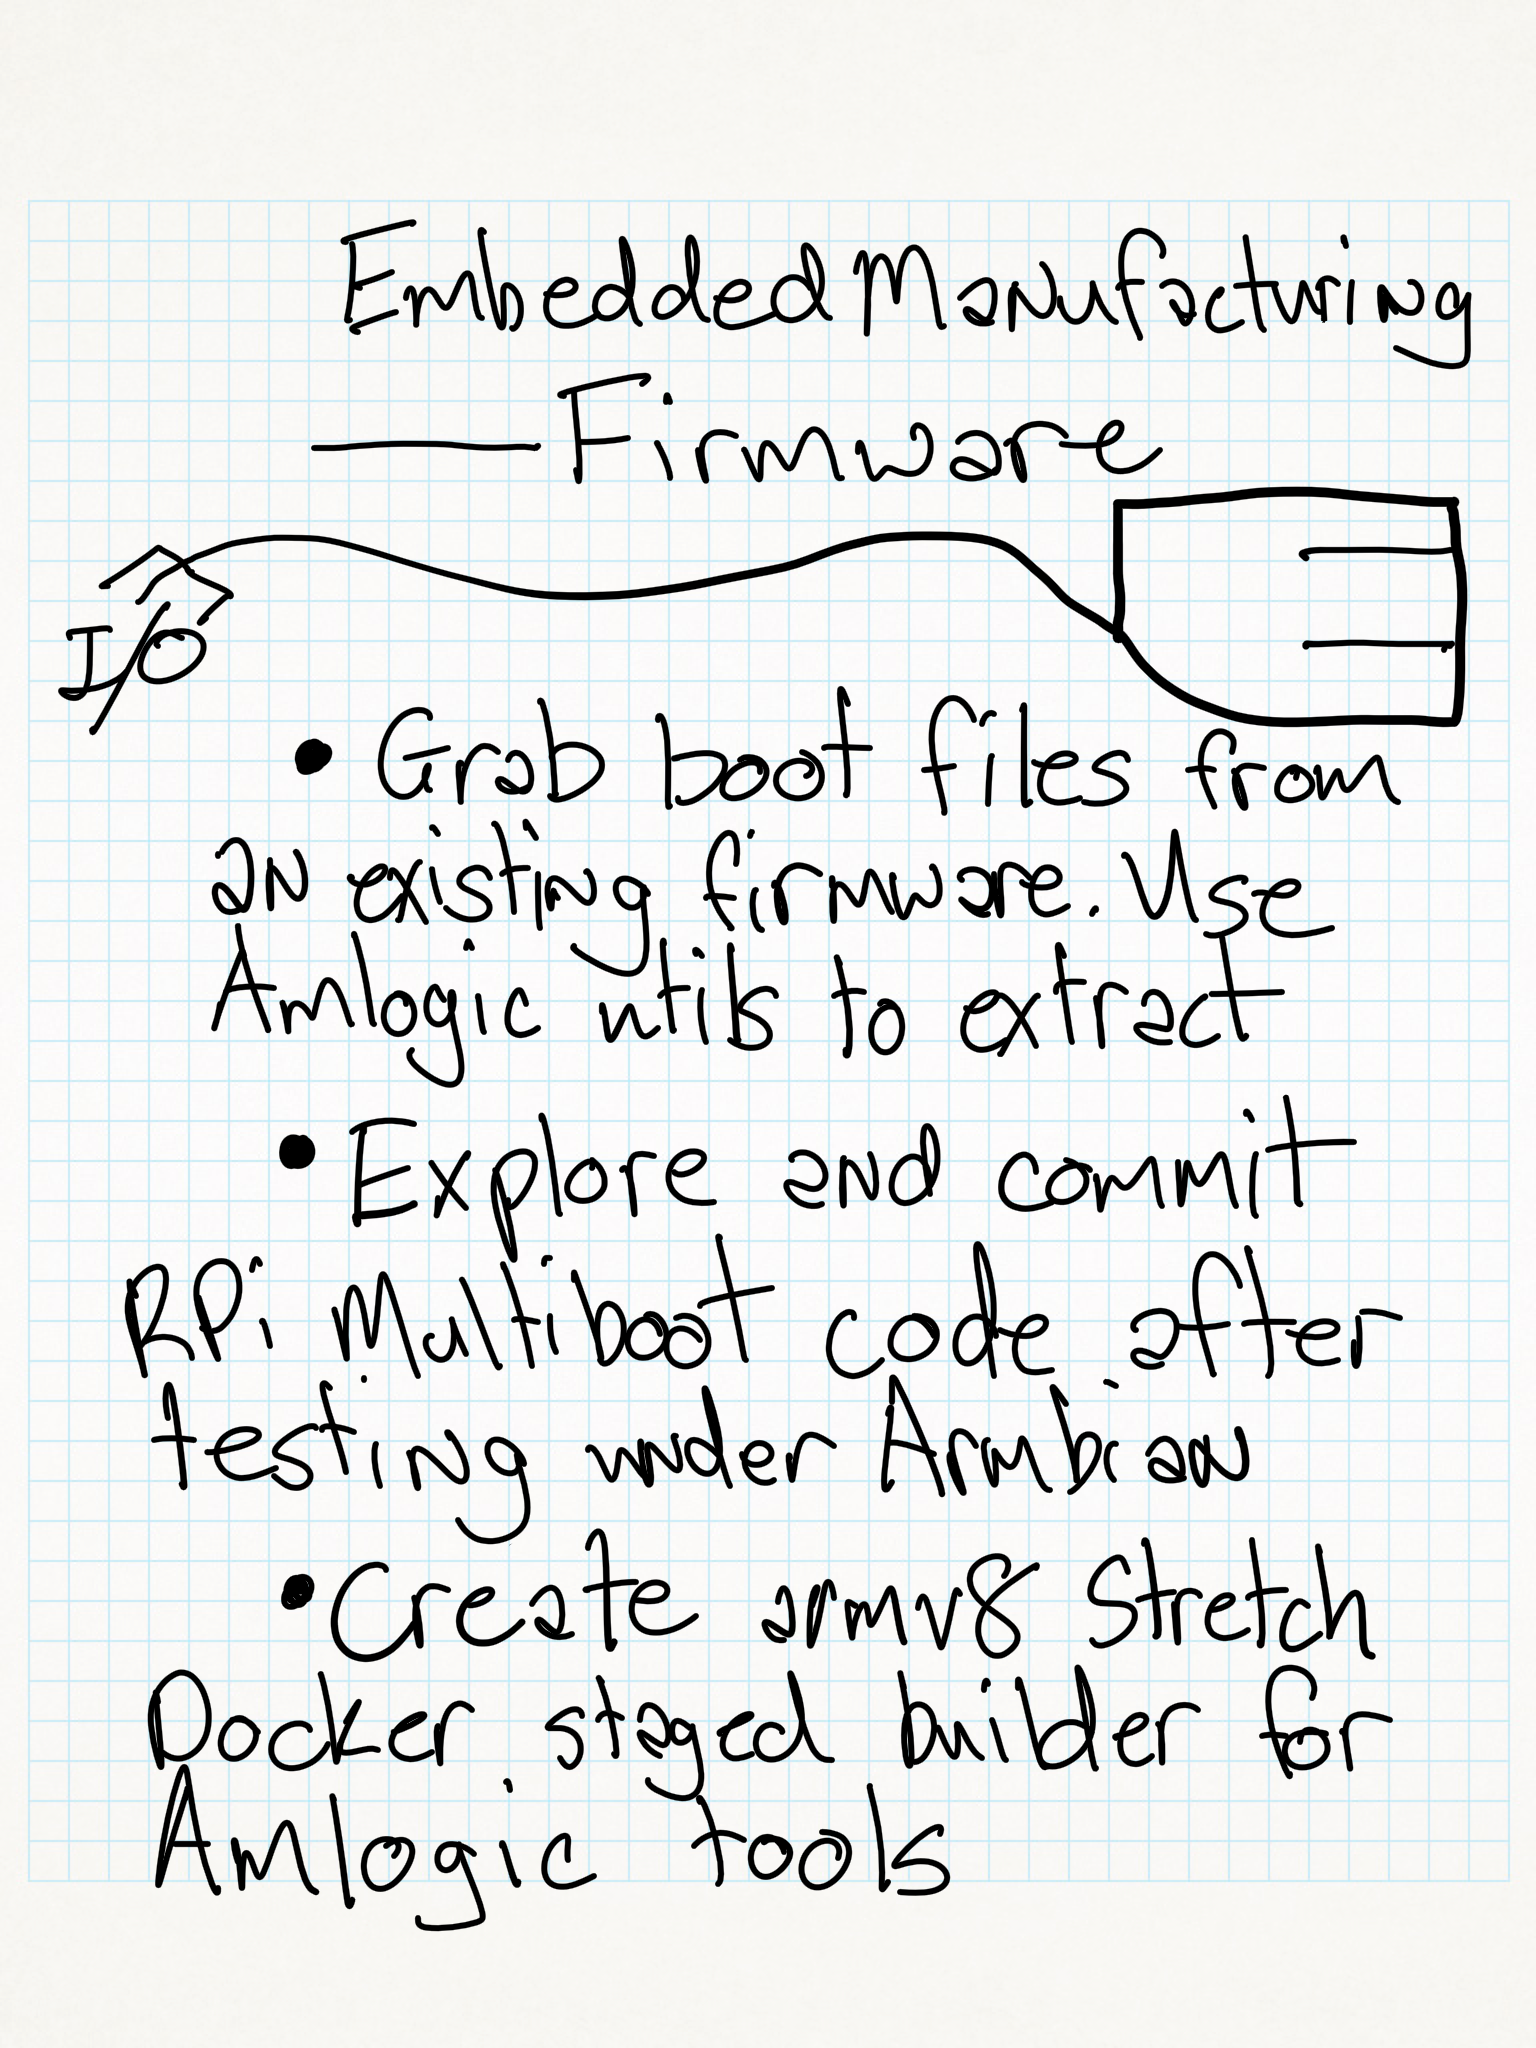 Embedded Manufacturing
— Firmware
I/O
• Grab boot files from
an existing firmware. Use
Amlogic utils to extract
• Explore and commit
RPi Multiboot code after
testing under Armbian
• Create armv8 Stretch
Docker staged builder for
Amlogic tools